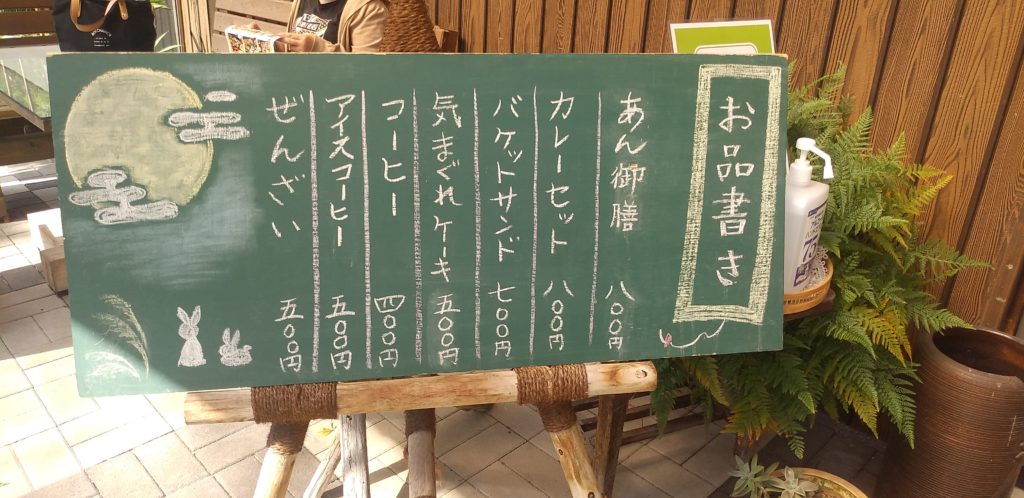 お品書き
あん御膳 八〇〇円
カレーセット 八〇〇円
バケットサンド 七〇〇円
気まぐれケーキ 五〇〇円
コーヒー 四〇〇円
アイスコーヒー 五〇〇円
ぜんざい 五〇〇円